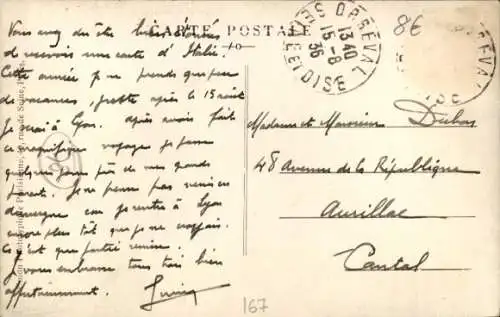 CARTE POSTALE
Vous avez du être bien étonnés
de recevoir une carte d'Italie.
Cette année je ne prends que peu
de vacances, juste après le 15 août
je serai à Lyon. Après avoir fait
ce magnifique voyage je passe
quelques jours près de mes grands
parents. Je ne pense pas venir en
Auvergne car je rentre à Lyon
encore plus tôt que je ne croyais.
Ce n'est que partie remise.
Je vous embrasse tous trois bien
affectueusement.
D'OREVAL
13 40
15-8
36
8€
Madame et Monsieur Dubos
48 Avenue de la République
Aurillac
Cantal
167